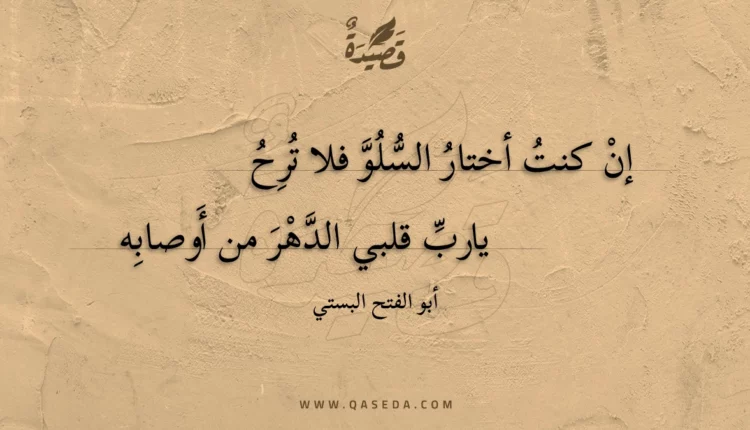 قَصِيدَةٌ
إنْ كنتُ أختارُ السُّلُوَّ فلا تُرِحُ
ياربِّ قلبي الدَّهْرَ من أَوصابِه
أبو الفتح البستي
WWW.QASEDA.COM